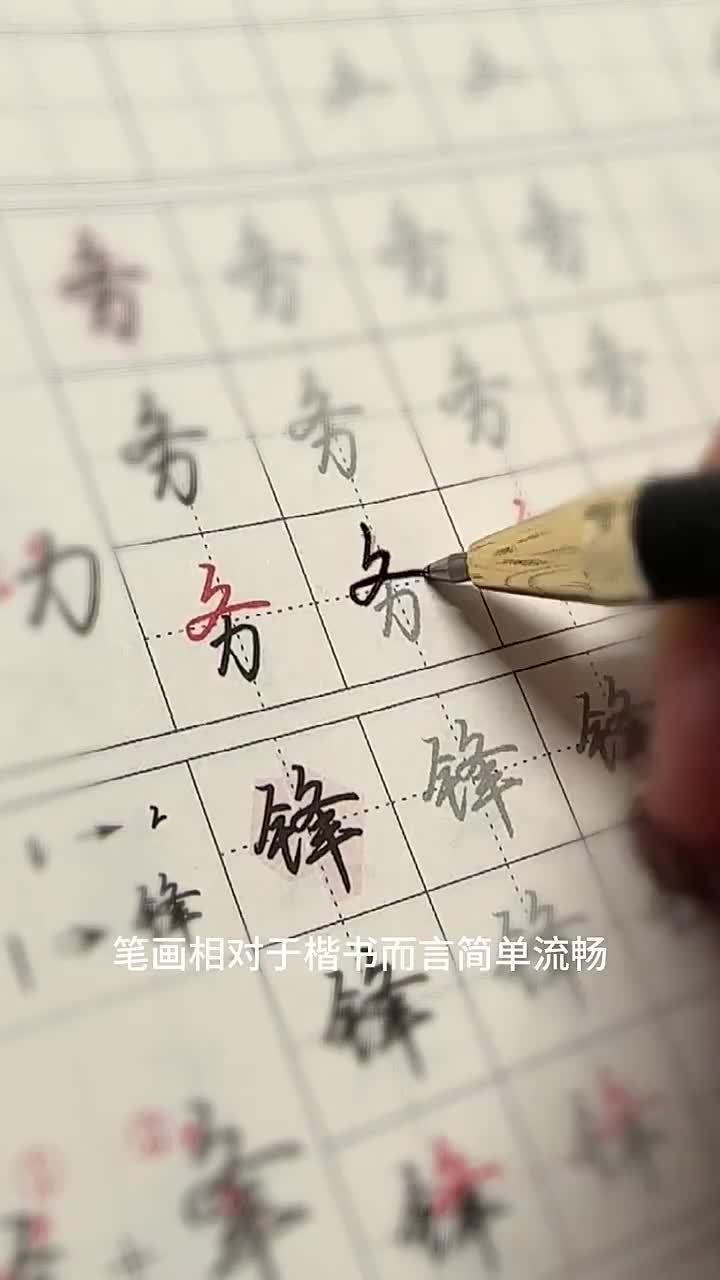 务 务 务 务
务 务 务 务
力 务 务
锋 锋 锋
锋
笔画相对于楷书而言简单流畅
锋 锋
锋 锋